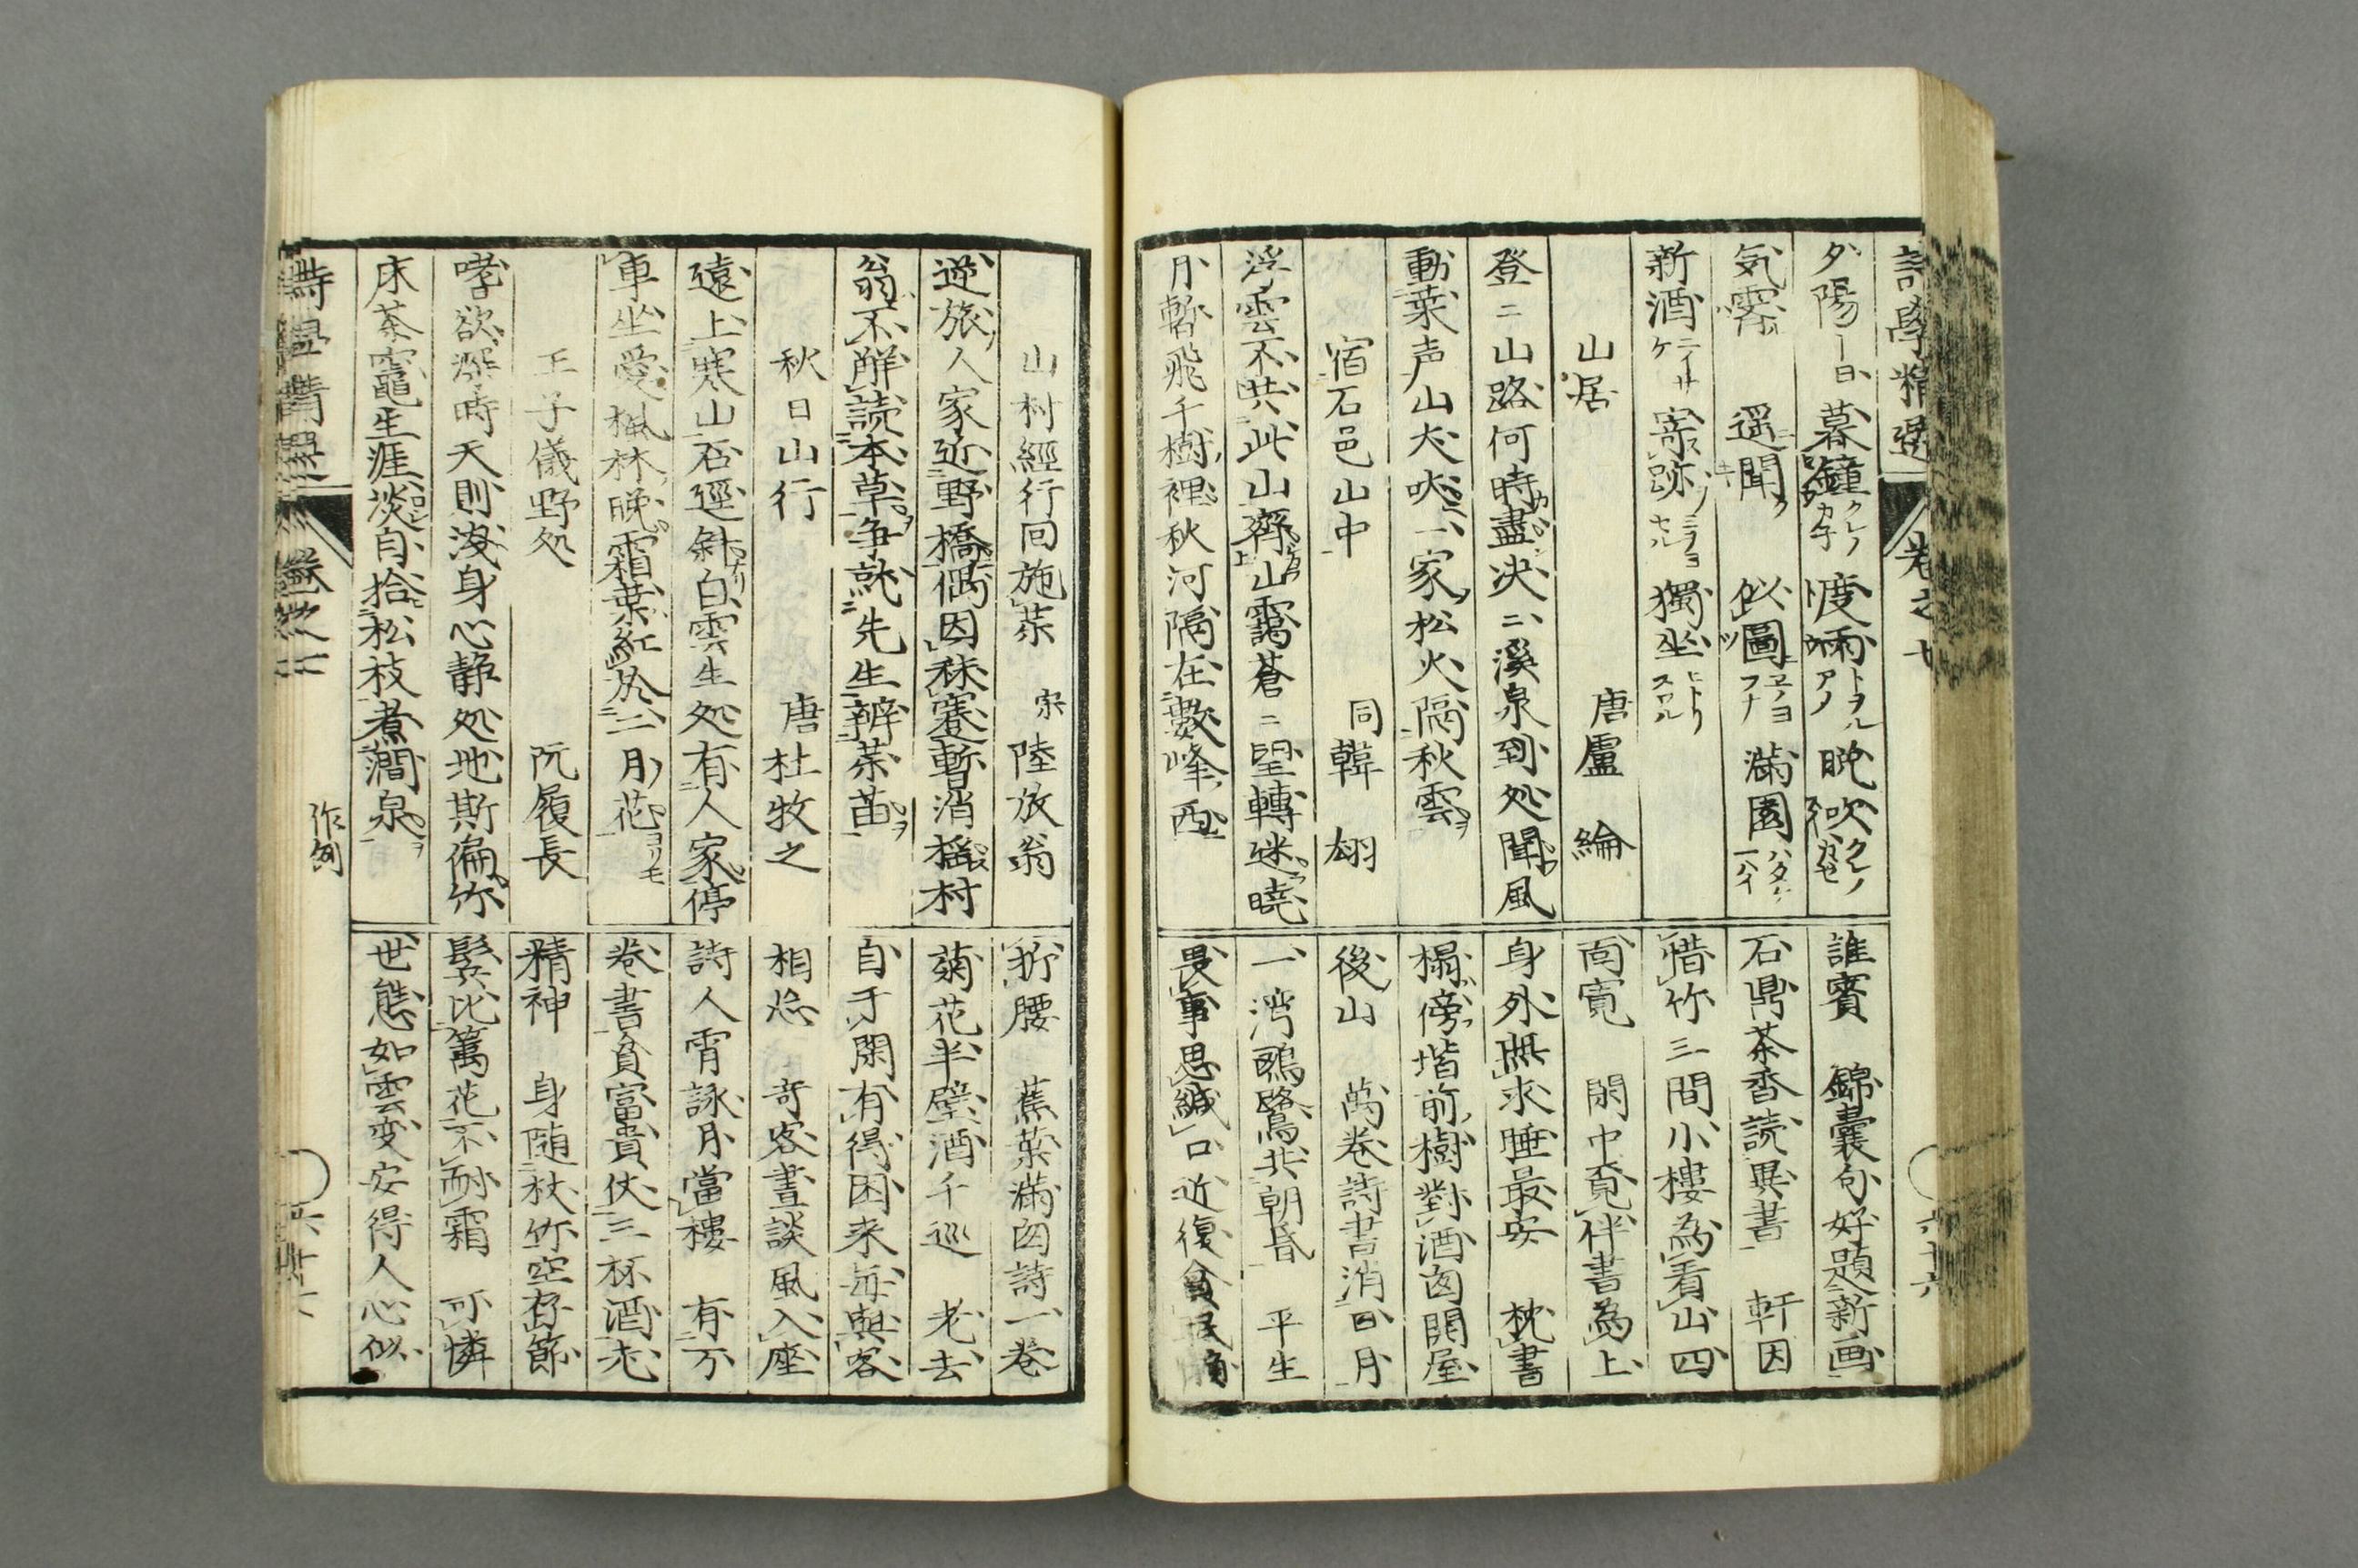 詩學精選 卷之十
夕陽一日 暮鐘クレノカネ 度雨トヲルアメ 晩吹クレノカゼ
気霽 遥聞ク 似圖ヱノヨフナ 満園ハタケ一ハイ
新酒ニイサケ 寄跡ミヲヨセル 獨坐ヒトリスワル
山居 唐盧綸
登二山路何時盡決二溪泉到処聞風
動葉声山犬吠一家松火隔秋雲
宿石邑山中 同韓翃
浮雲不共此山齊山靄蒼二望轉迷暁
月暫飛千樹裡秋河隔在數峰西
誰賓 錦嚢句好題新画
石鼎茶香読異書 軒因
惜竹三間小樓為看山四
面寛 閑中覔伴書為上
身外無求睡最安 枕書
榻傍堦前樹對酒囪開屋
後山 萬卷詩書消日月
一湾鷗鷺共朝昏 平生
畏事思緘口近復食
六十六
山村經行回施薬 宋陸放翁
逆旅人家近野橋偶因秣蹇暫消搖村
翁不解読本草争就先生辨薬苗
秋日山行 唐杜牧之
遠上寒山石逕斜白雲生処有人家停
車坐愛楓林晩霜葉紅於二月花ヨリモ
王子儀野処 阮履長
嗜欲深時天則浅身心静処地斯偏竹
床茶竈生涯淡自拾松枝煮澗泉
折腰 蕉葉満囪詩一卷
菊花半壁酒千巡 老去
自于閑有得困来毎與客
相忘 奇客晝談風入座
詩人宵詠月當樓 有万
卷書貧富貴仗三杯酒志
精神 身随杖竹空存節
鬂比篱花不耐霜 可憐
世態如雲変安得人心似
詩學精選 卷之二
作例